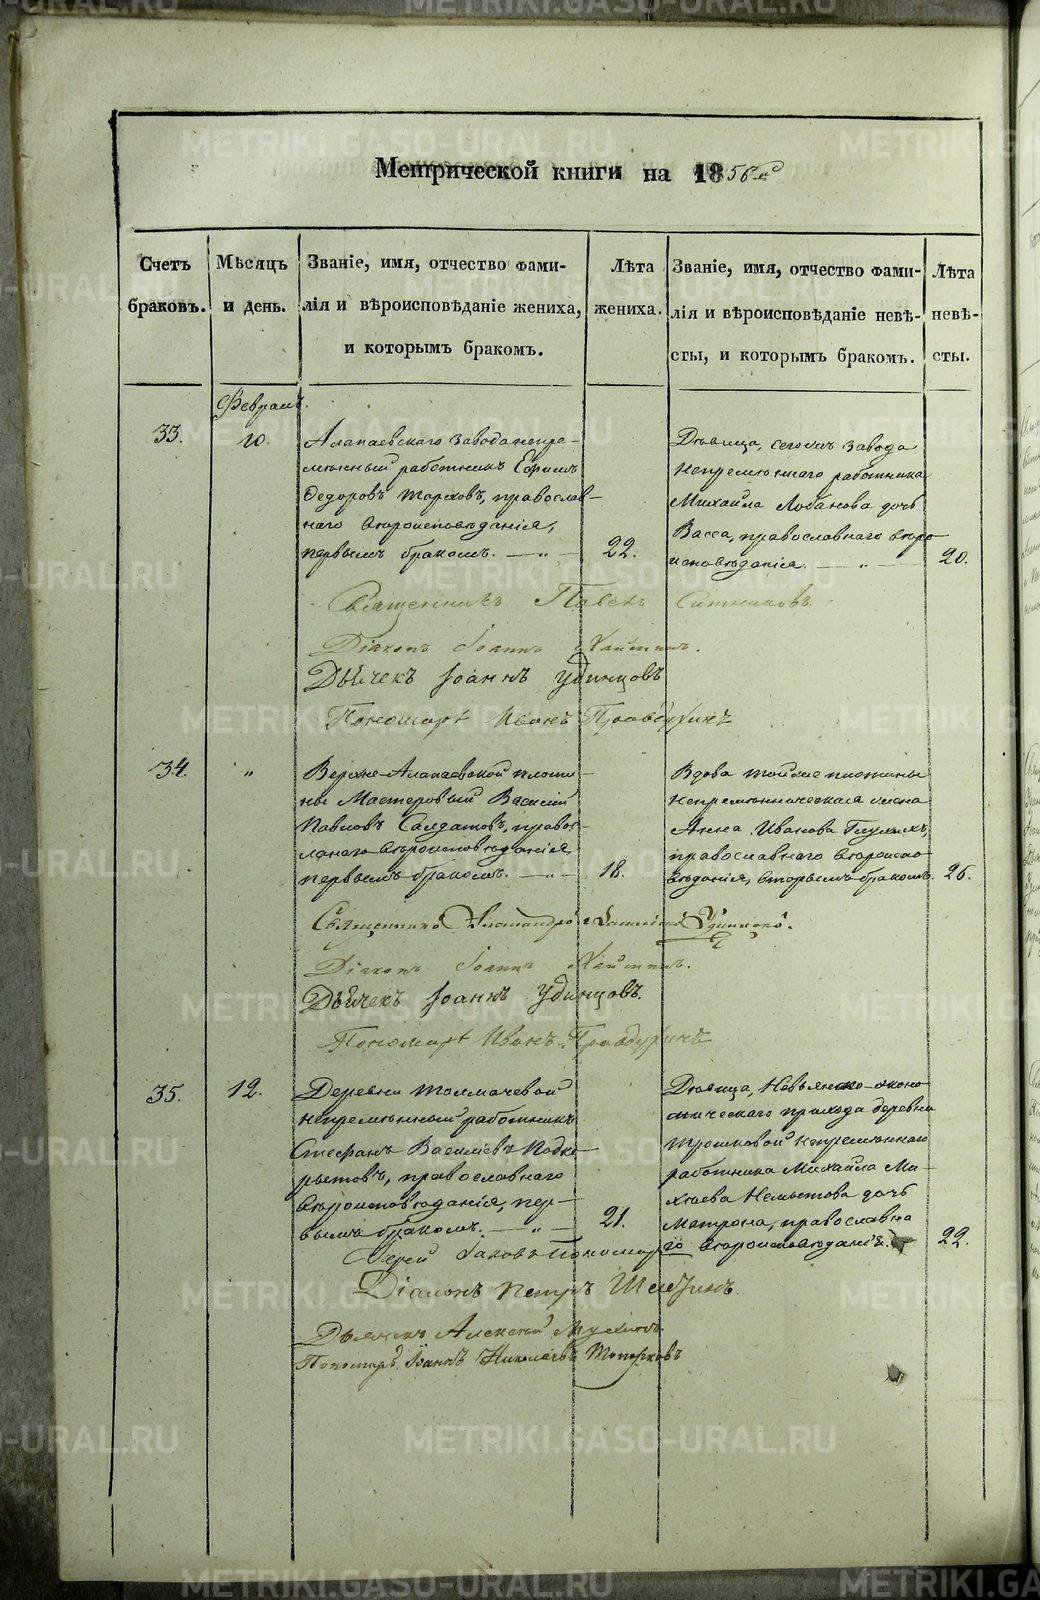 Метрической книги на 1856 й
Счетъ браковъ.
Мѣсяцъ и день.
Званіе, имя, отчество фами-
лія и вѣроисповѣданіе жениха,
и которымъ бракомъ.
Лѣта жениха.
Званіе, имя, отчество фами-
лія и вѣроисповѣданіе невѣ-
сты, и которымъ бракомъ.
Лѣта невѣ-
сты.
Февраль.
33.
10.
Алапаевскаго завода непре-
мѣнный работникъ Ефимъ
Федоровъ православ-
наго вѣроисповѣданія,
первымъ бракомъ.
22.
Дѣвица, сегожъ завода
непремѣннаго работника
Михаила Лобанова дочь
Васса, православнаго вѣро-
исповѣданія.
20.
Священникъ Павелъ Ситниковъ.
Діаконъ Іоаннъ
Дьячекъ Іоаннъ Удинцовъ
Пономарь Иванъ Правдухинъ
34.
"
Верхне-Алапаевской плоти-
ны Мастеровый Василій
Павловъ Солдатовъ, правос-
лавнаго вѣроисповѣданія,
первымъ бракомъ.
18.
Вдова тойже плотины
непремѣнническая жена
Анна Иванова Глухихъ,
православнаго вѣроиспо-
вѣданія, вторымъ бракомъ.
26.
Священникъ Удинцовъ.
Діаконъ Іоаннъ
Дьячекъ Іоаннъ Удинцовъ.
Пономарь Иванъ Правдухинъ
35.
12.
Деревни Толмачевой
непремѣнный работникъ
Стефанъ Васильевъ Подко-
рытовъ, православнаго
вѣроисповѣданія, пер-
вымъ бракомъ.
21.
Дѣвица, Невьянско-эконо-
мическаго прихода деревни
Трошковой непремѣннаго
работника Михаила Ми-
хѣева Немытова дочь
Матрона, православна-
го вѣроисповѣданія.
22.
Іерей Іаковъ Пономаревъ
Діаконъ Петръ
Дьячекъ Алексій Мухинъ
Пономарь Іоаннъ Николаевъ Топорковъ
METRIKI.GASO-URAL.RU